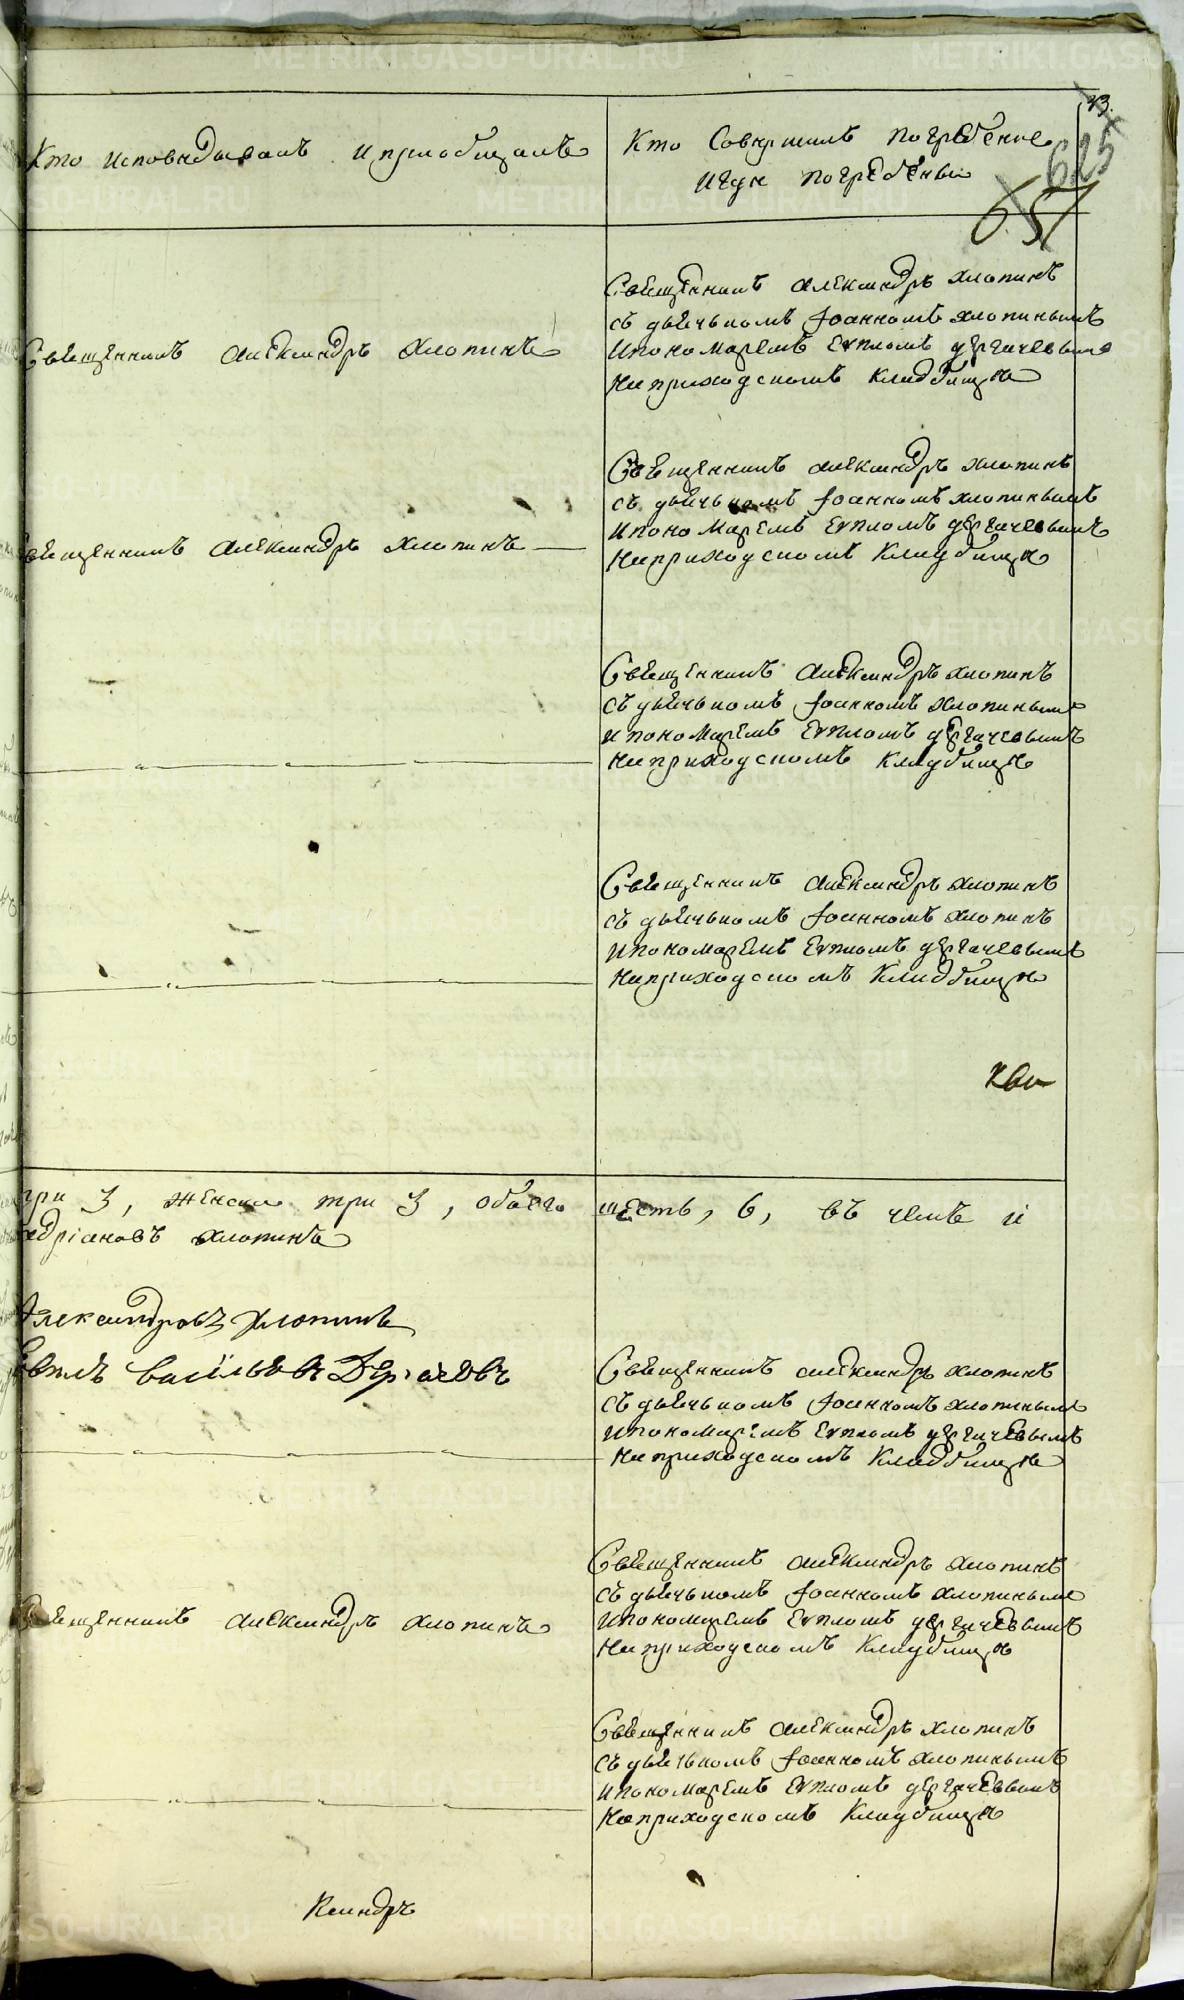 73.
625
651
Кто исповедывалъ и приобщалъ
Кто Совершилъ погребение
и где погребены
Священникъ Александръ Хлопинъ
Священникъ Александръ Хлопинъ
съ дьячькомъ Іоанномъ Хлопинымъ
и пономаремъ Еѵпломъ Дергачевымъ
на приходскомъ кладбище
Священникъ Александръ Хлопинъ
Священникъ Александръ Хлопинъ
съ дьячькомъ Іоанномъ Хлопинымъ
и пономаремъ Еѵпломъ Дергачевымъ
на приходскомъ кладбище
Священникъ Александръ Хлопинъ
съ дьячькомъ Іоанномъ Хлопинымъ
и пономаремъ Еѵпломъ Дергачевымъ
на приходскомъ кладбище
Священникъ Александръ Хлопинъ
съ дьячькомъ Іоанномъ Хлопинъ
и пономаремъ Еѵпломъ Дергачевымъ
на приходскомъ кладбище
три 3, женска три 3, обоего шесть, 6, въ чемъ и
Адріановъ Хлопинъ
Александровъ Хлопинъ
Евплъ Васильевъ Дергачевъ
Священникъ Александръ Хлопинъ
съ дьячькомъ Іоанномъ Хлопинымъ
и пономаремъ Еѵпломъ Дергачевымъ
на приходскомъ кладбище
Священникъ Александръ Хлопинъ
Священникъ Александръ Хлопинъ
съ дьячькомъ Іоанномъ Хлопинымъ
и пономаремъ Еѵпломъ Дергачевымъ
на приходскомъ кладбище
Священникъ Александръ Хлопинъ
съ дьячькомъ Іоанномъ Хлопинымъ
и пономаремъ Еѵпломъ Дергачевымъ
на приходскомъ кладбище
METRIKI.GASO-URAL.RU